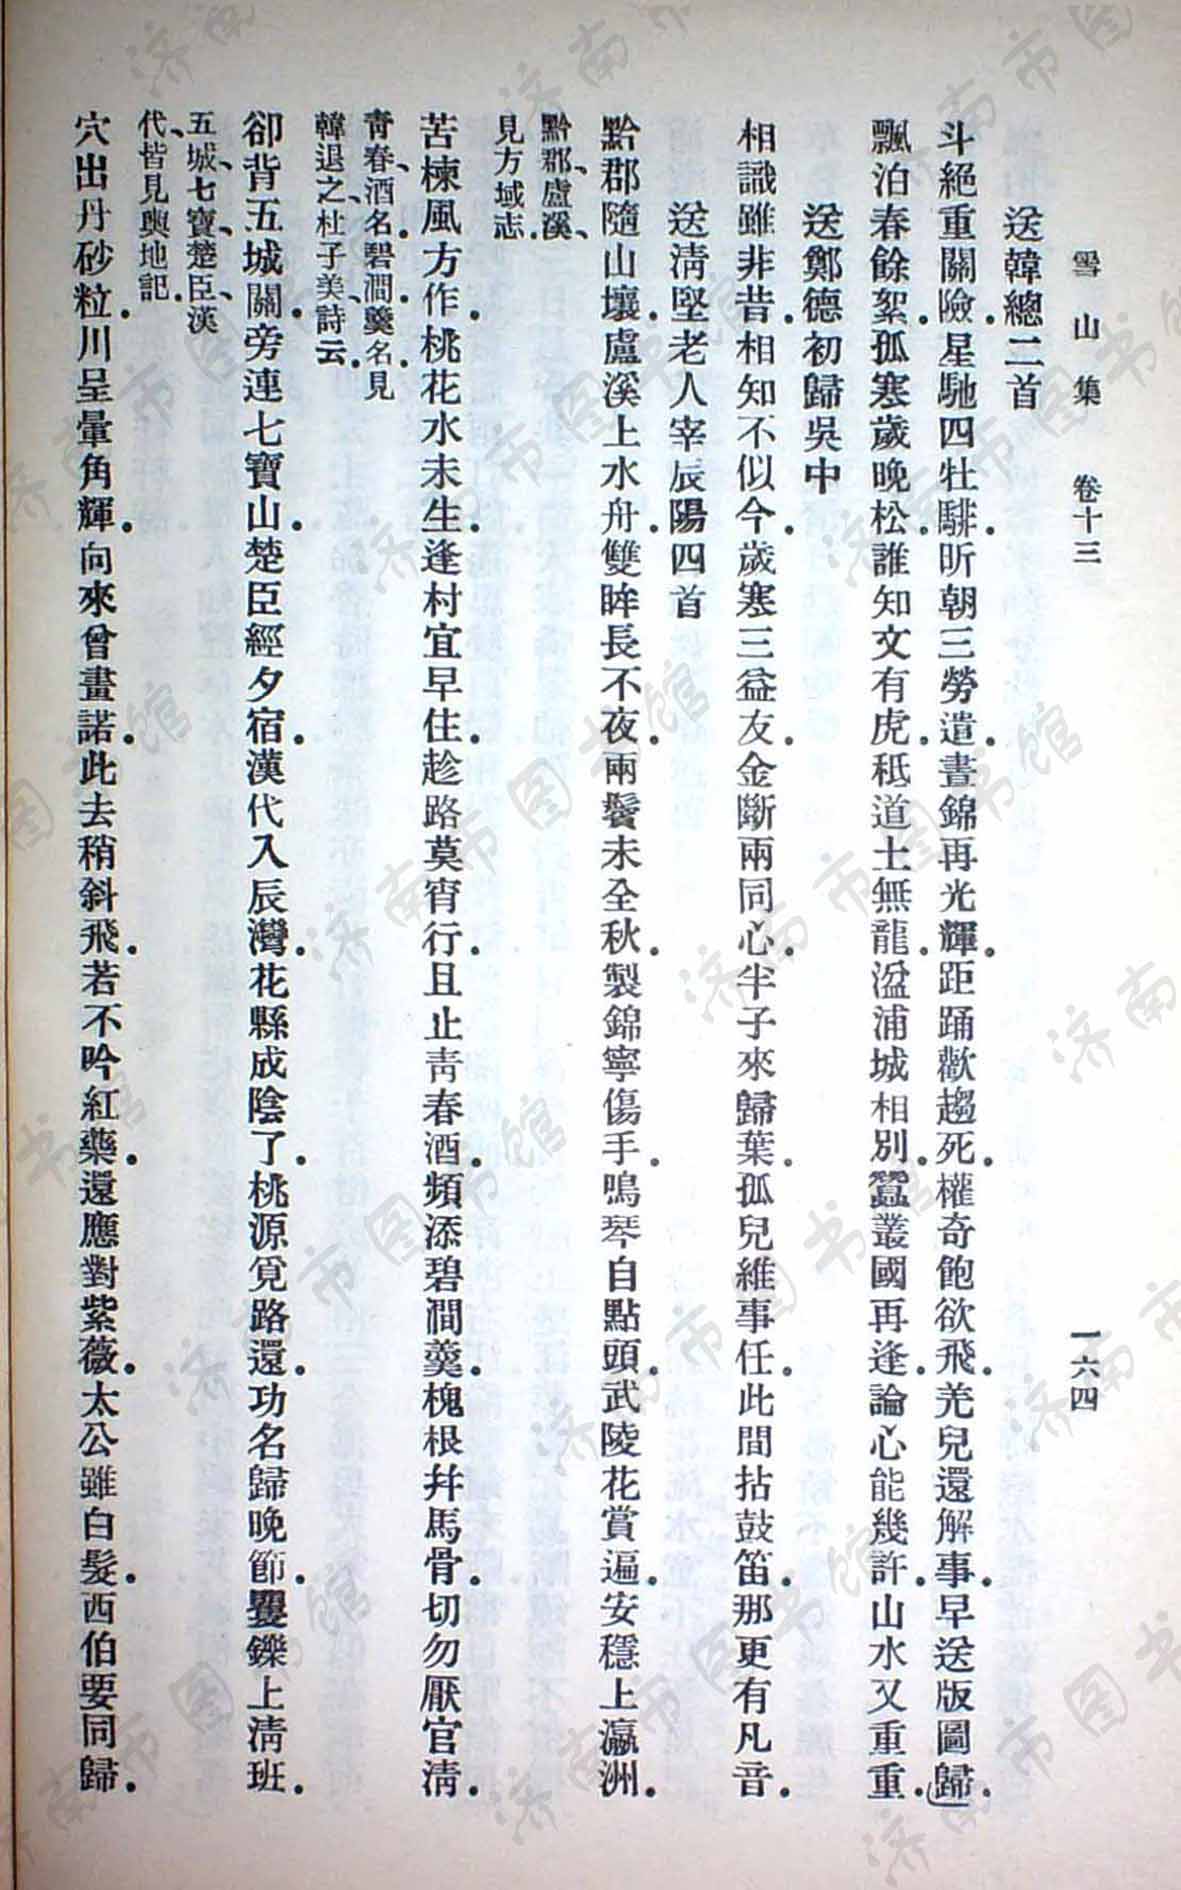 雪山集 卷十三 一六四
送韓總二首
斗絕重關險．星馳四牡騑．昕朝三勞遣．晝錦再光輝．距踊歡趨死．權奇飽欲飛．羌兒還解事．早送版圖歸．
飄泊春餘絮．孤寒歲晚松．誰知文有虎．秖道士無龍．湓浦城相別．蠶叢國再逢．論心能幾許．山水又重重．
送鄭德初歸吳中
相識雖非昔．相知不似今．歲寒三益友．金斷兩同心．半子來歸葉．孤兒維事任．此間拈鼓笛．那更有凡音．
送淸堅老人宰辰陽四首
黔郡隨山壤．盧溪上水舟．雙眸長不夜．兩鬢未全秋．製錦寧傷手．鳴琴自點頭．武陵花賞遍．安穩上瀛洲．
黔郡、盧溪、
見方域志．
苦楝風方作．桃花水未生．逢村宜早住．趁路莫宵行．且止靑春酒．頻添碧澗羹．槐根幷馬骨．切勿厭官淸．
靑春、酒名．碧澗．羹名．見
韓退之、杜子美、詩云．
卻背五城關．旁連七寶山．楚臣經夕宿．漢代入辰灣．花縣成陰了．桃源覓路還．功名歸晚節．矍鑠上淸班．
五城、七寶、楚臣、漢
代、皆見輿地記．
穴出丹砂粒．川呈暈角輝．向來曾畫諾．此去稍斜飛．若不吟紅藥．還應對紫薇．太公雖白髮．西伯要同歸．